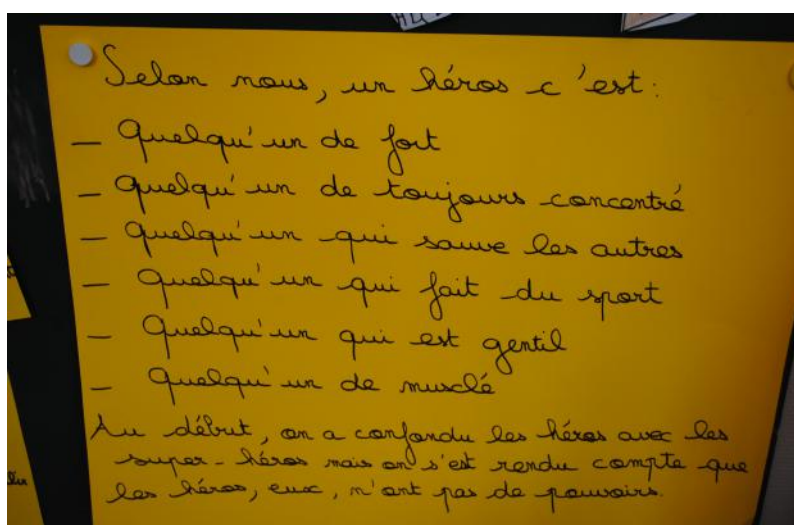 Selon nous, un héros c'est:
- Quelqu'un de fort
- Quelqu'un de toujours concentré
- Quelqu'un qui sauve les autres
- Quelqu'un qui fait du sport
- Quelqu'un qui est gentil
- Quelqu'un de musclé
Au début, on a confondu les héros avec les
super-héros mais on s'est rendu compte que
les héros, eux, n'ont pas de pouvoirs.